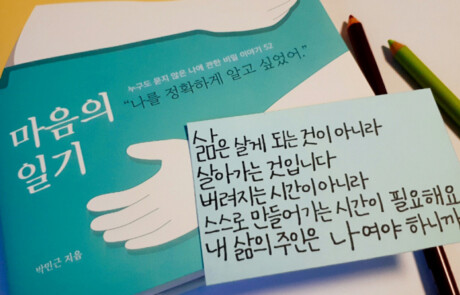 누구도 묻지 않은 나에 관한 비밀 이야기 52
“나를 정확하게 알고 싶었어.”
마음의
일기
박민근 지음
삶은 살게 되는 것이 아니라
살아가는 것입니다
버려지는 시간이 아니라
스스로 만들어가는 시간이 필요해요
내 삶의 주인은 나여야 하니까